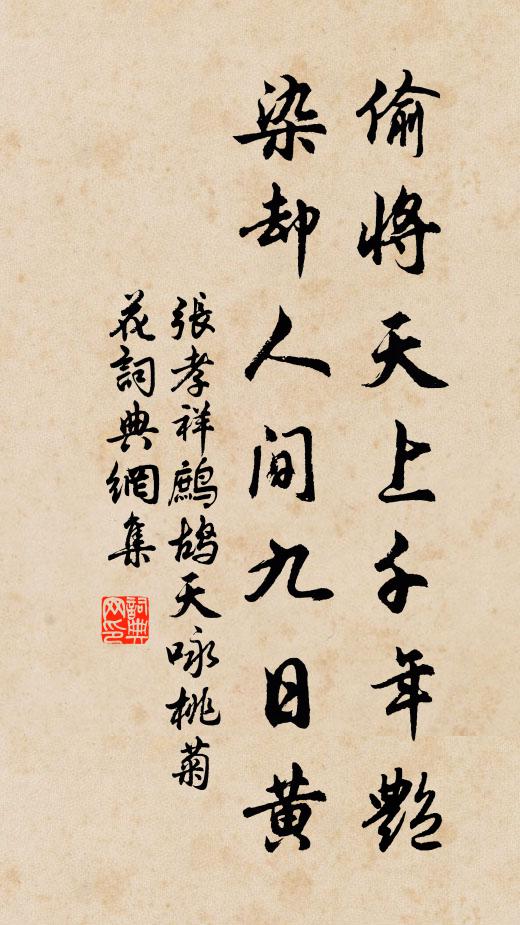 偷將天上千年艷
染却人間九日黃
張孝祥鷓鴣天咏桃菊
花詞典網集
詞典网印